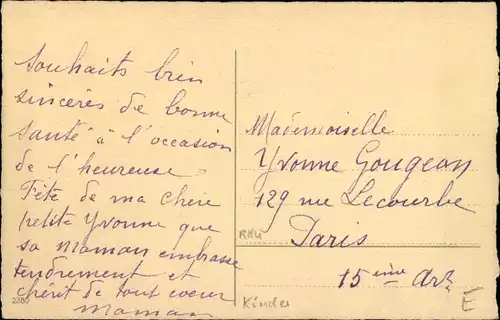 Souhaits bien
sincères de bonne
santé à l'occasion
de l'heureuse
Fête de ma chère
petite Yvonne que
sa Maman embrasse
tendrement et
chérit de tout coeur
Maman
2280
Mademoiselle
Yvonne Gougeon
129 rue Lecourbe
Paris
15ème Arr
Kinder
E